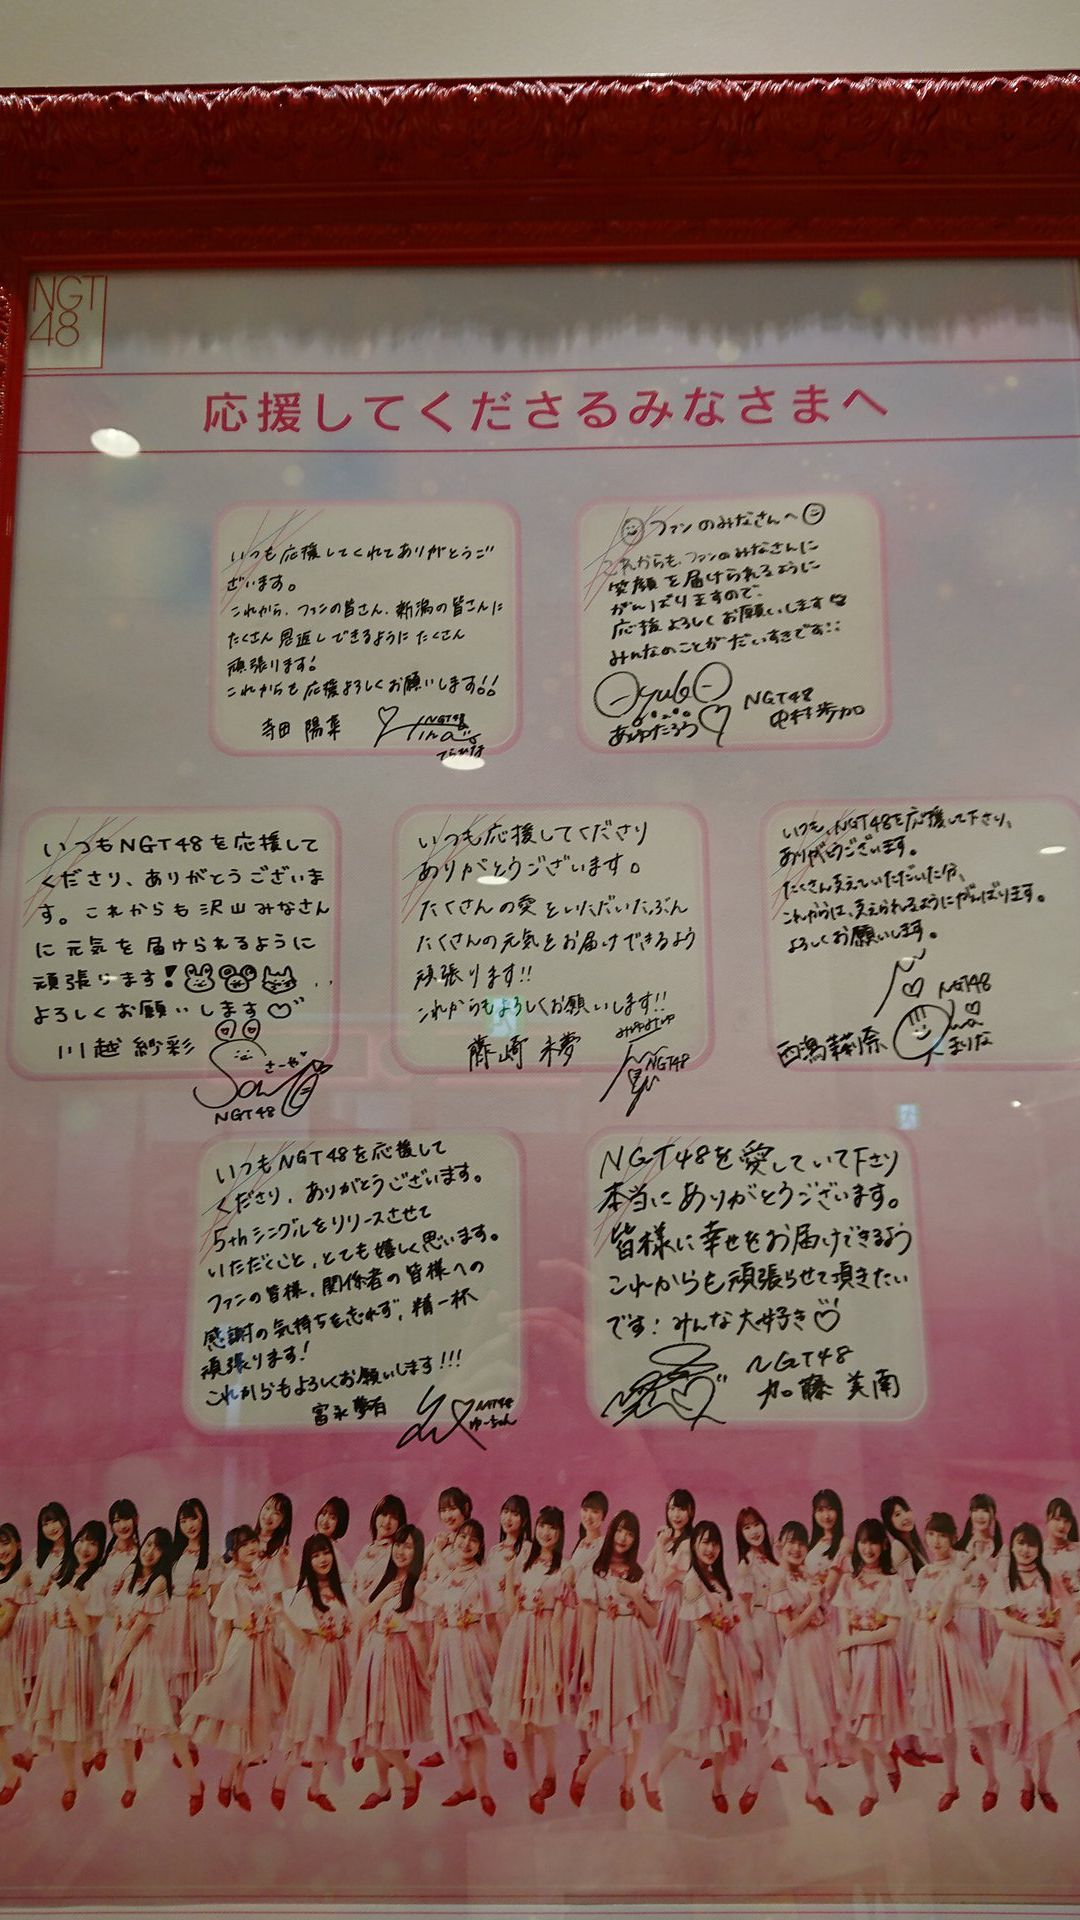 NGT
48
応援してくださるみなさまへ
いつも応援してくれてありがとうご
ざいます。
これから、ファンの皆さん、新潟の皆さんに
たくさん恩返しできるようにたくさん
頑張ります!
これからも応援よろしくお願いします!!
寺田 陽菜
NGT48
Hina
てらひな
ファンのみなさんへ
これからも、ファンのみなさんに
笑顔を届けられるように
がんばりますので、
応援よろしくお願いします
みんなのことがだいすきです!!
Ayuka
あゆたろう
NGT48
中村歩加
いつもNGT48を応援して
くださり、ありがとうございま
す。これからも沢山みなさん
に元気を届けられるように
頑張ります!
よろしくお願いします♡
川越紗彩
さーや
NGT48
いつも応援してくださり
ありがとうございます。
たくさんの愛をいただいたぶん
たくさんの元気をお届けできるよう
頑張ります!!
これからもよろしくお願いします!!
藤崎未夢
NGT48
いつも、NGT48を応援して下さり、
ありがとうございます。
たくさん支えていただいた分、
これからは、支えられるようにがんばります。
よろしくお願いします。
NGT48
西潟茉莉奈
まりな
いつもNGT48を応援して
くださり、ありがとうございます。
5thシングルをリリースさせて
いただくこと、とても嬉しく思います。
ファンの皆様、関係者の皆様への
感謝の気持ちを忘れず、精一杯
頑張ります!
これからもよろしくお願いします!!!
富永夢有
NGT48
ゆーちゃん
NGT48を愛していて下さり
本当にありがとうございます。
皆様に幸せをお届けできるよう
これからも頑張らせて頂きたい
です!みんな大好き♡
NGT48
加藤美南